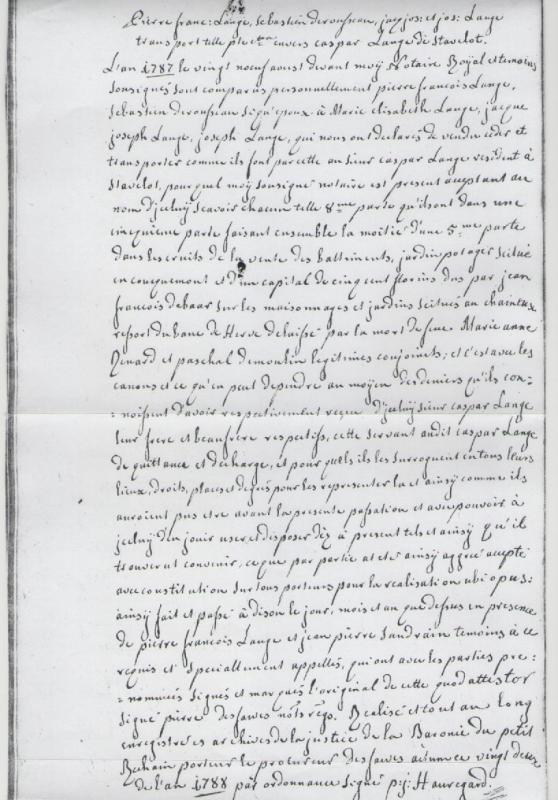 Pierre franc: Lange, sebastien derousseau, jacq jos: et jos: Lange
transport telle pte ctra envers caspar Lange de Stavelot.
L'an 1787 le vingt noeuf aoust devant moy Notaire Royal et temoins
sousignés sont comparus personnellement pierre francois Lange,
sebastien derousseau sig' epoux à Marie elisabeth Lange, jacque
joseph Lange, joseph Lange, qui nous ont declarés de vendre ceder et
transporter comme ils font par cette au sieur caspar Lange resident à
Stavelot, pour quel moy sousigné notaire est present aceptant au
nom d'jceluy scavoir chacun telle 8me parte qu'ils ont dans une
cincquieme parte faisant ensemble la moitié d'une 5me parte
dans les cruits de la vente des battiments, jardin potager scitué
en coucquemont et d'un capital de cinq cent florins dus par jean
francois debaar sur les maisonnages et jardins scitués au chaineux
ressort du bane de Herve delaissé par la mort de feue Marie anne
Renard et paschal demoulin legitimes conjoints; et c'est avec les
canons et ce qu'en peut dependre au moyen des deniers qu'ils con-
-noissent d'avoir respectivement reçu d'jceluy sieur caspar Lange
leur frere et beaufrere respectifs, cette servant audit caspar Lange
de quittance et decharge, et pour quels ils les surroguent en tous leurs
lieux, droits, places et degrés pour les representer la et ainsy comme ils
auroient pus etre avant la presente passation et avec pouvoir à
jceluy d'en jouir user et disposer dez à present tels et ainsy qu'il
trouverat convenir, ce que par partie at eté ainsy aggreé accepté
avec constitution sur tous porteurs pour la realisation ubi opus:
ainsy fait et passé à dison le jour, mois et an que dessus en presence
de pierre francois Lange et jean pierre Sandrain temoins à ce
requis et speciallement appellés, qui ont avec les parties pre:
-nommées signés et marqués l'original de cette quod attestor
signé pierre desfawes nots rgo. Realisé et tout au long
enregistré es archives de la justice de la Baronie du petit
Rechain porteur le procureur desfawes à
de l'an 1788 par ordonnance signé p: j: Hauregard.